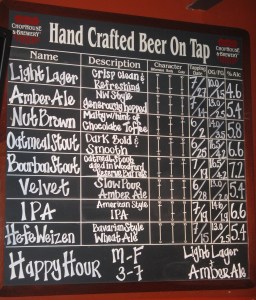 CHOPHOUSE
& BREWERY
Hand Crafted Beer On Tap
CHOPHOUSE
& BREWERY
Name Description Character Tapping Date OG/FG % Alc
Light Lager Crisp clean & Refreshing 4.6
Amber Ale NW Style generously hopped 5.4
Nut Brown Malty w/hint of Chocolate Toffee 5.8
Oatmeal Stout Dark Bold & Smooth 6.6
Bourbon Stout Oatmeal Stout aged in Woodford Reserve Barrels 7.2
Velvet Slow Pour Amber Ale 5.4
IPA American Style IPA 6.6
Hefe Weizen Bavarian Style Wheat Ale 5.4
Happy Hour M-F 3-7 Light Lager & Amber Ale